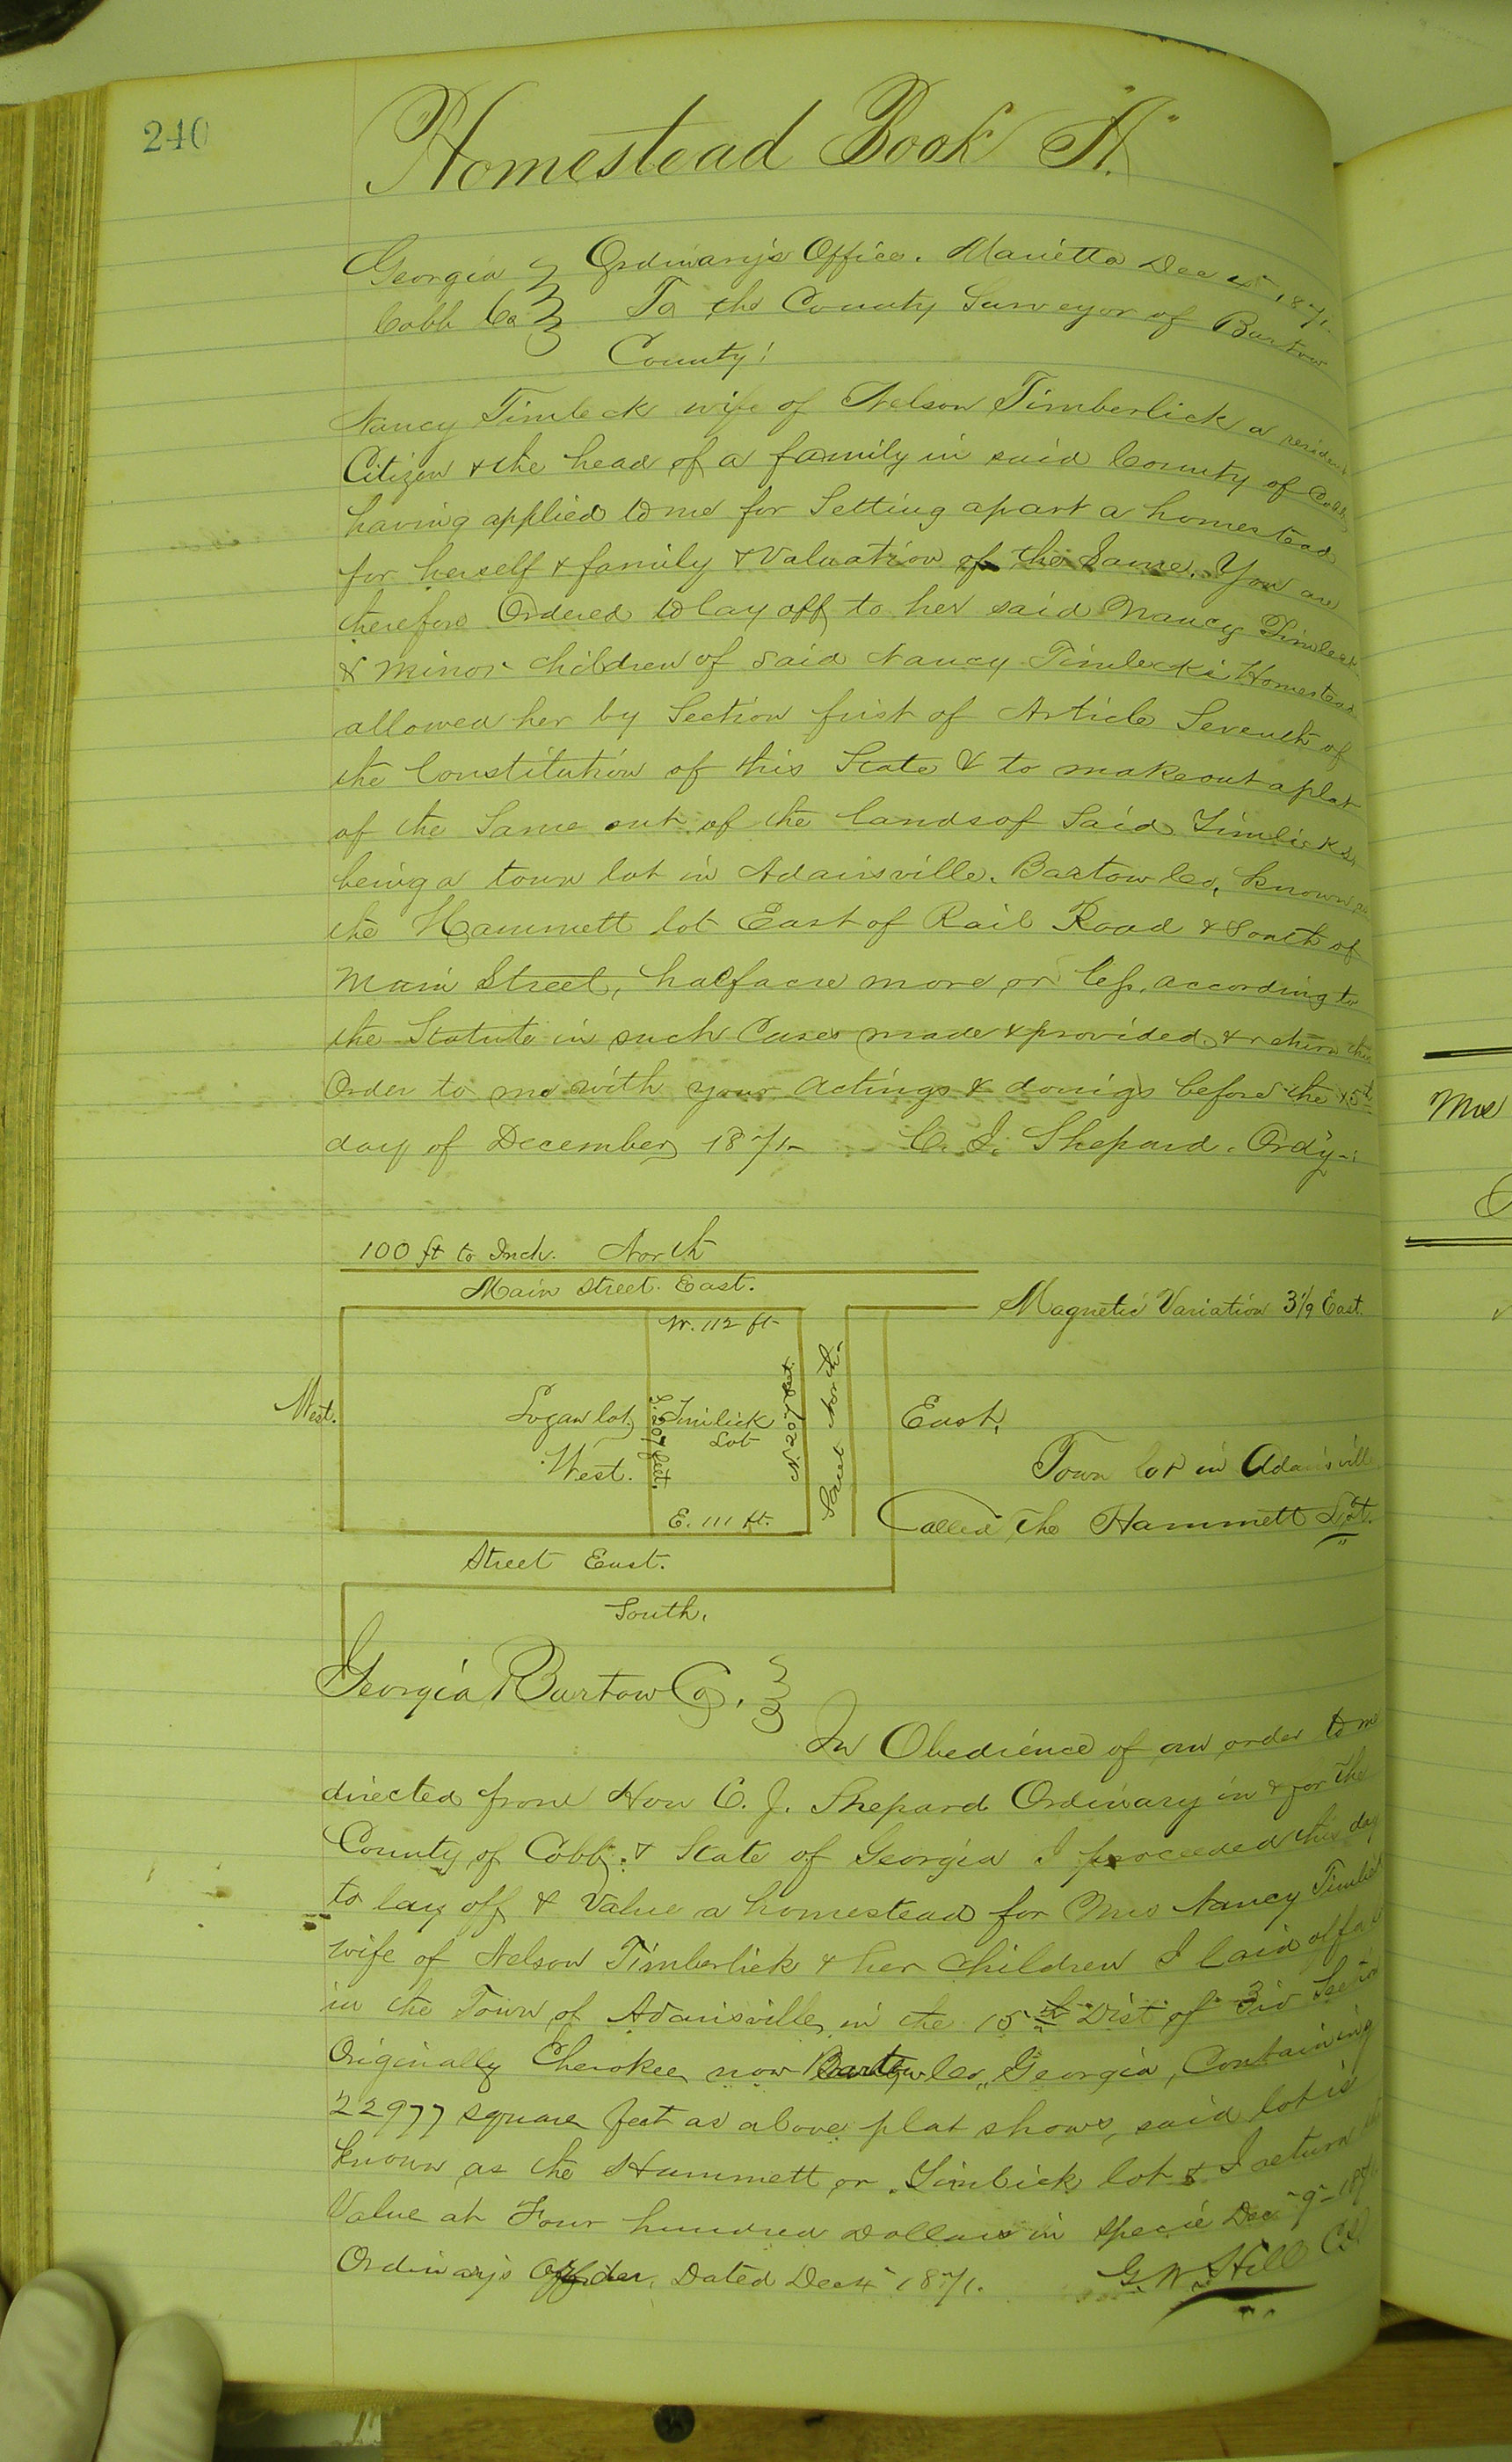 240
Homestead Book "A."
Georgia } Ordinary's Office. Marietta Dec 4" 1871.
Cobb Co } To the County Surveyor of Bartow
County!
Nancy Timleck wife of Nelson Timberlick a resident
Citizen & the head of a family in said County of Cobb
having applied to me for Setting apart a homestead
for herself & family & Valuation of the Same. You are
therefore Ordered to lay off to her said Nancy Timleck
& minor children of said Nancy Timlecki Homestead
allowed her by Section first of Article Seventh of
the Constitution of this State & to make out a plat
of the Same out of the lands of Said Timlicks,
being a town lot in Adairsville. Bartow Co, known as
the Hammett lot East of Rail Road & South of
Main Street, half acre more or less, according to
the Statute in such Cases made & provided, & return this
Order to me with your actings & doings before the 15th
day of December 1871- C. J. Shepard. Ordy-:
100 ft to Inch. North
Main Street. East.
Magnetic Variation 3 1/9 East.
W. 112 ft-
West.
Logan lot,
West.
S. 207 feet.
Timlick
Lot
N. 207 feet.
Street North-
East,
E. 111 ft.
Town lot in Adairsville
Called The Hammett Lot.
Street East.
South.
Georgia Bartow Co, }
In Obedience of an order to me
directed from Hon C. J. Shepard Ordinary in & for the
County of Cobb & State of Georgia I proceeded this day
to lay off & Value a homestead for Mrs Nancy Timlick
wife of Nelson Timberlick & her children I laid off a lot
in the Town of Adairsville, in the 15th Dist of 3rd Section
Originally Cherokee now Bartow Co,, Georgia, Containing
22977 square feet as above plat shows, said lot is
known as the Hammett or Timlick lot & I return
Value at Four hundred Dollars in specie Dec "9" 1871
Ordinary's Order, Dated Dec 4" 1871. G. W. Hill C.S.
Mrs